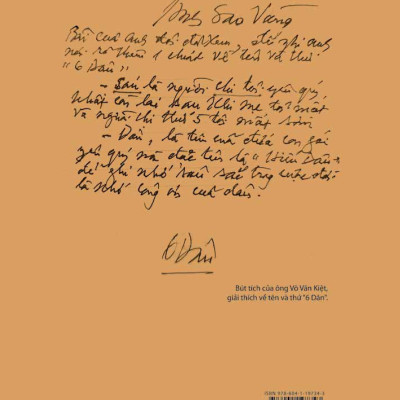 Anh Sao Vàng
Bài của anh tôi đã xem, đề nghị anh
nói rõ thêm 1 chút về tên và thứ
"6 Dân"
- Sáu là người chị tôi yêu quý,
nhất còn lại sau khi mẹ tôi mất
và người chị thứ 5 tôi mất sớm
- Dân, là tên của đứa con gái
yêu quý mà đặt tên là "Hiếu Dân"
để ghi nhớ sâu sắc trong cuộc đời
là nhớ công ơn của dân.
6 Dân
Bút tích của ông Võ Văn Kiệt,
giải thích về tên và thứ "6 Dân".